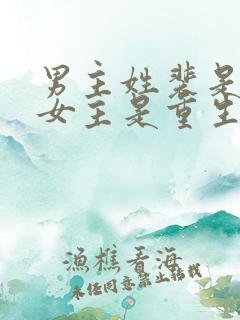 男主姓裴是
女主是重生
漁樵看海
未经同意禁止转载